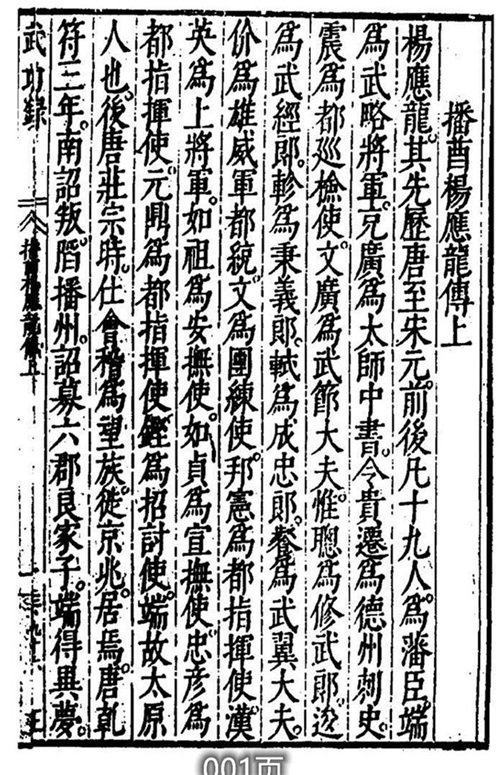 播酋楊應龍傳上
楊應龍其先歷唐至宋元前後凡十九人爲藩臣端
爲武略將軍元廣爲太師中書令貴遷爲德州刺史
震爲都巡檢使文廣爲武節大夫惟聰爲修武郎逡
爲武經郎軫爲秉義郎軾爲成忠郎粲爲武翼大夫
价爲雄威軍都統文爲團練使邦憲爲都指揮使漢
英爲上將軍如祖爲安撫使如貞爲宣撫使忠彥爲
都指揮使元鼎爲都指揮使鏗爲招討使端故太原
人也後唐莊宗時仕會稽爲望族徙京兆居焉唐乾
符三年南詔叛陷播州詔募六郡良家子端得異夢
武功錄
播酋楊應龍傳上
001页